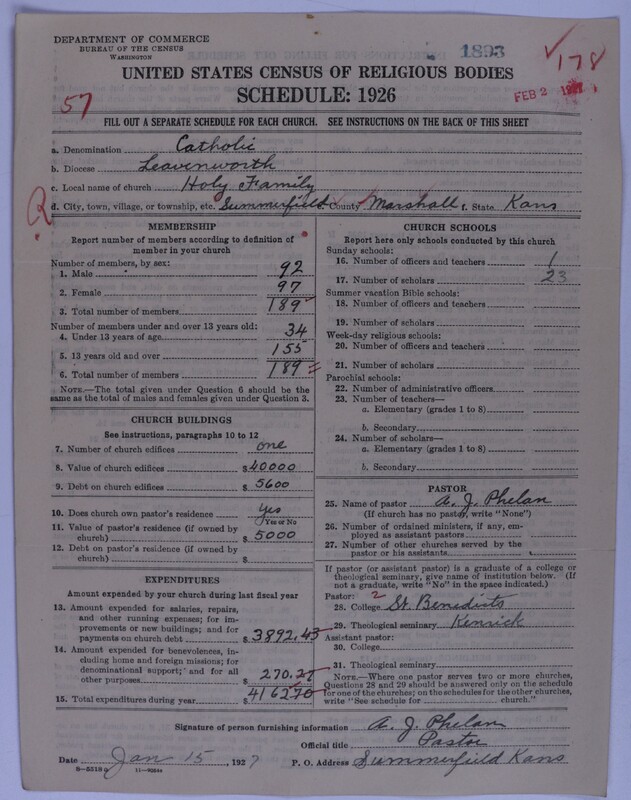 DEPARTMENT OF COMMERCE
BUREAU OF THE CENSUS
WASHINGTON
1893
178
FEB 2 1927
57
UNITED STATES CENSUS OF RELIGIOUS BODIES
SCHEDULE: 1926
FILL OUT A SEPARATE SCHEDULE FOR EACH CHURCH. SEE INSTRUCTIONS ON THE BACK OF THIS SHEET
a. Denomination Catholic
b. Diocese Leavenworth
c. Local name of church Holy Family
d. City, town, village, or township, etc. Summerfield e. County Marshall f. State Kans
MEMBERSHIP
Report number of members according to definition of
member in your church
Number of members, by sex:
1. Male 92
2. Female 97
3. Total number of members 189
Number of members under and over 13 years old:
4. Under 13 years of age 34
5. 13 years old and over 155
6. Total number of members 189
NOTE.—The total given under Question 6 should be the
same as the total of males and females given under Question 3.
CHURCH BUILDINGS
See instructions, paragraphs 10 to 12
7. Number of church edifices one
8. Value of church edifices $40000
9. Debt on church edifices $5600
10. Does church own pastor's residence yes
Yes or No
11. Value of pastor's residence (if owned by
church) $5000
12. Debt on pastor's residence (if owned by
church) $
EXPENDITURES
Amount expended by your church during last fiscal year
13. Amount expended for salaries, repairs,
and other running expenses; for im-
provements or new buildings; and for
payments on church debt $3892.43
14. Amount expended for benevolences, in-
cluding home and foreign missions; for
denominational support; and for all
other purposes $270.27
15. Total expenditures during year $416270
CHURCH SCHOOLS
Report here only schools conducted by this church
Sunday schools:
16. Number of officers and teachers 1
17. Number of scholars 23
Summer vacation Bible schools:
18. Number of officers and teachers
19. Number of scholars
Week-day religious schools:
20. Number of officers and teachers
21. Number of scholars
Parochial schools:
22. Number of administrative officers
23. Number of teachers—
a. Elementary (grades 1 to 8)
b. Secondary
24. Number of scholars—
a. Elementary (grades 1 to 8)
b. Secondary
PASTOR
25. Name of pastor A. J. Phelan
(If church has no pastor, write "None")
26. Number of ordained ministers, if any, em-
ployed as assistant pastors
27. Number of other churches served by the
pastor or his assistants
If pastor (or assistant pastor) is a graduate of a college or
theological seminary, give name of institution below. (If
not a graduate, write "No" in the space indicated.)
Pastor: 2
28. College St. Benedicts
29. Theological seminary Kenrick
Assistant pastor:
30. College
31. Theological seminary
NOTE.—Where one pastor serves two or more churches,
Questions 28 and 29 should be answered only on the schedule
for one of the churches; on the schedules for the other churches,
write "See schedule for church."
Signature of person furnishing information A. J. Phelan
Official title Pastor
Date Jan 15, 1927 P. O. Address Summerfield Kans